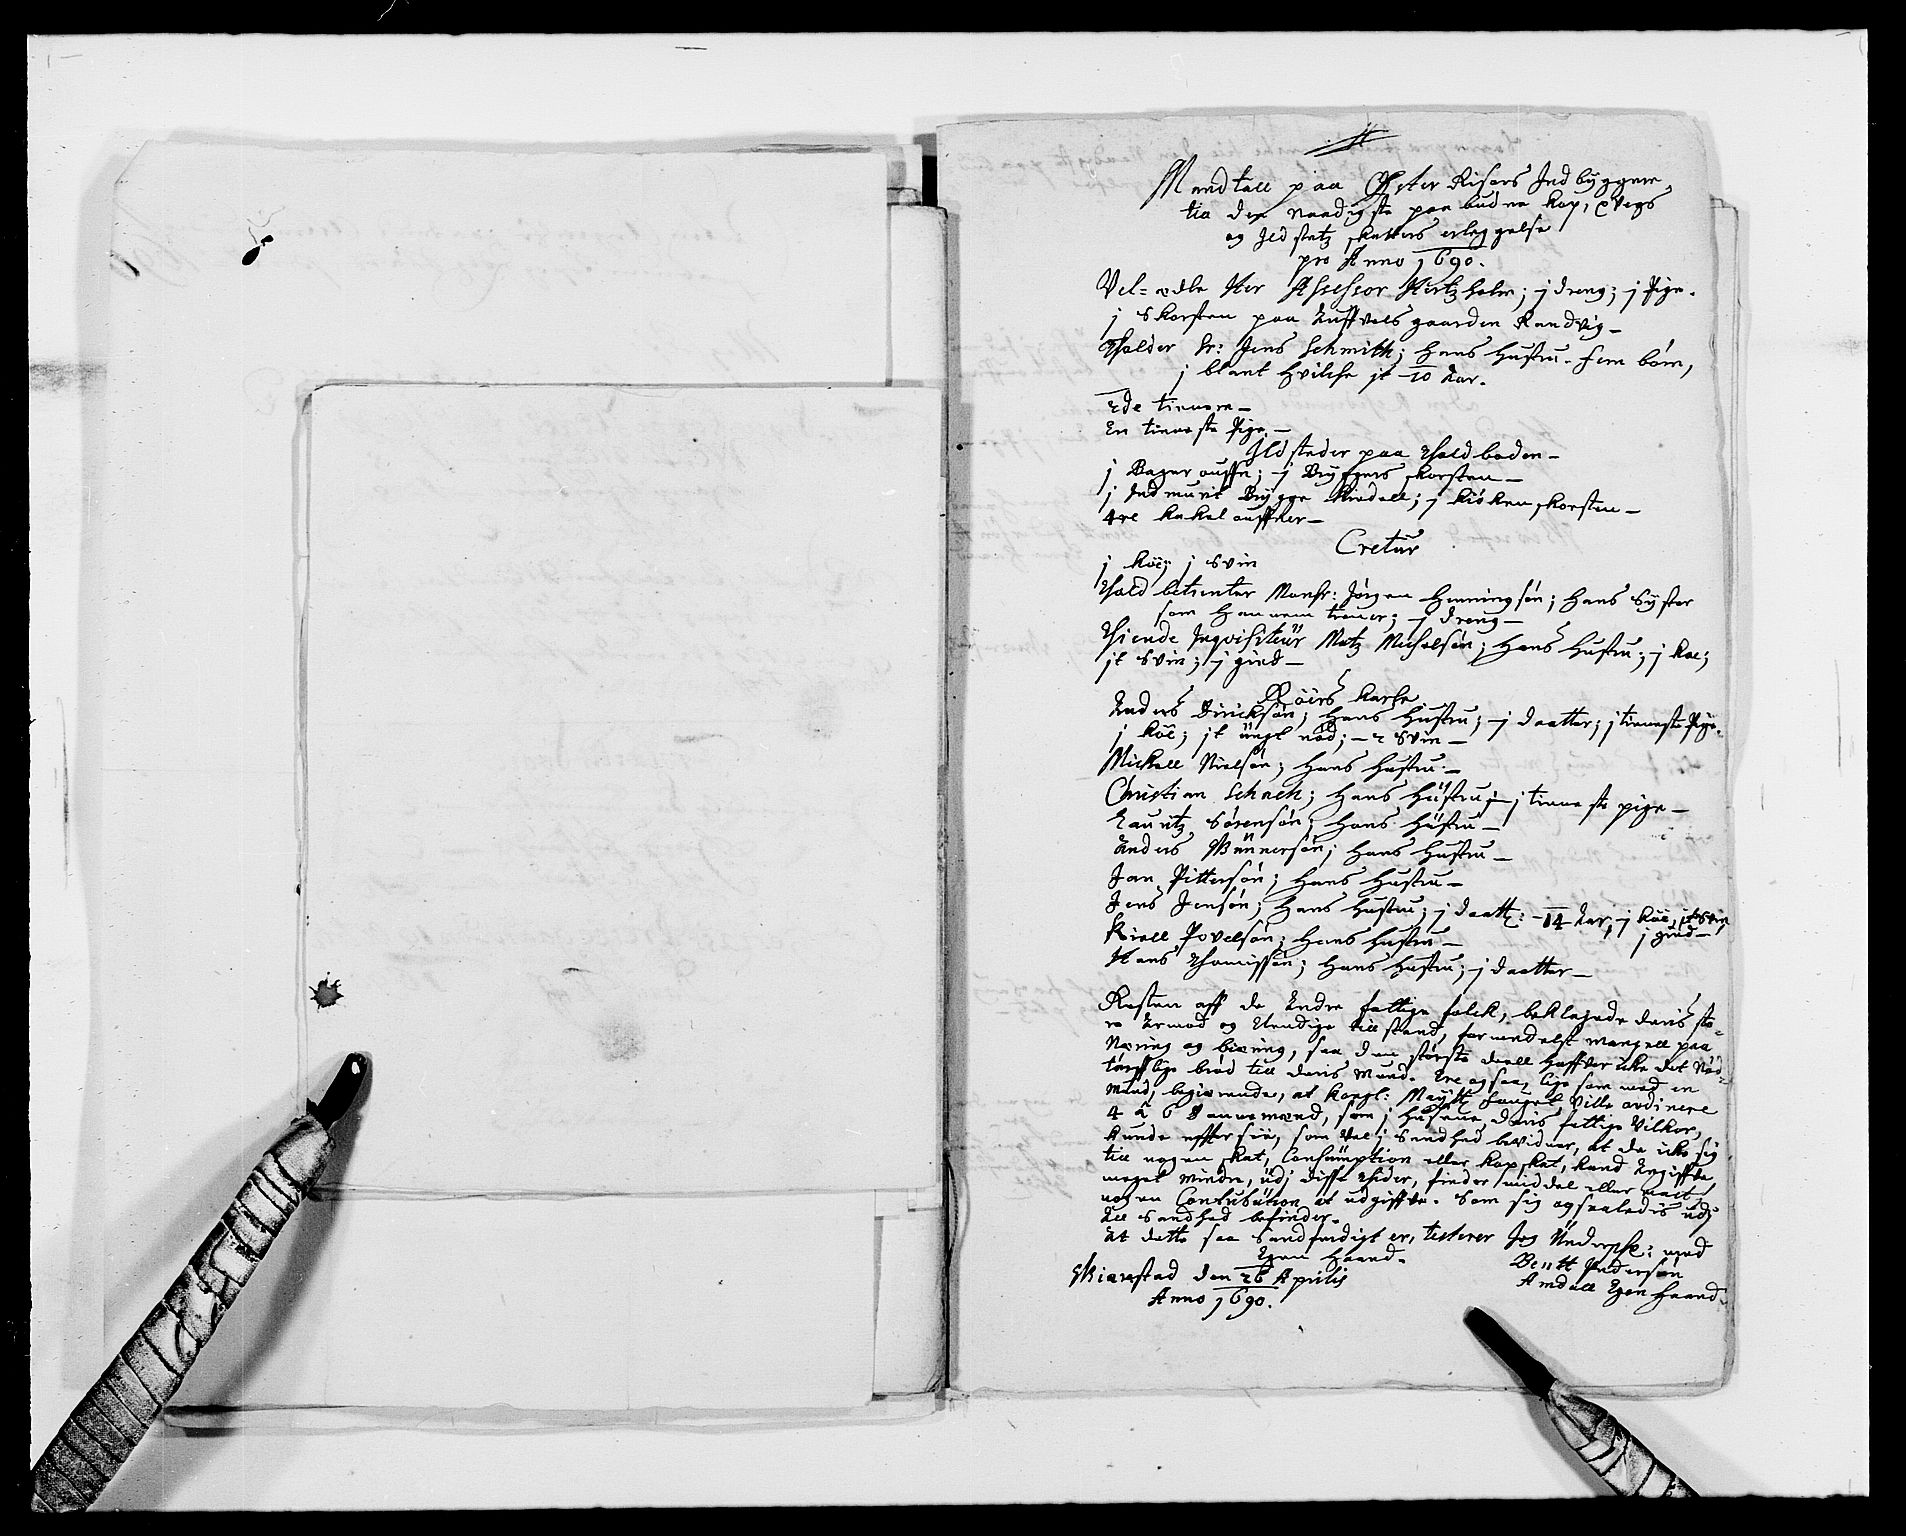 Mandtall paa Øster Risørs Indbÿggere,
til den naadigste paabudne Kop, qvegs
og Ildstetz skatters erleggelse
pro Anno 1690.
Vel=ædle Her Assessor Hertzholm; j dreng; j Pige.
j Skorsten paa Auffvels gaarden Randvig –
Tolder Sr: Jens Schmith; Hans Hustru. fem börn,
j blant hvilche jt 10 Aar.
2de tienere –
En tieneste Pige. –
Ildsteder paa Toldboden –
j Bager ouffn; – j Brÿggers skorsten –
j Indmurit Brÿgge Kiedell; j Kiöken skorsten –
4re Kakelouffner –
Cretur
j Köe; j Svin
Told betienter Monsr: Jörgen Henningsön; hans Syster
som hannem tiener; – j dreng –
Tiende Inqvisiteür Matz Michelsön; Hans Hustru; j Koe;
jt Svin; – j gied –
Roërs Karle
Anders Dirichsön; Hans Hustru; – j daatter; j tieneste Pige.
j Köe; jt üngt nöd; – 2 Svin –
Mickell Nielsön; Hans Hustru. –
Christian Schach; Hans Hüstru; – j tieneste pige –
Lauritz Sörensön; Hans Hüstru –
Anders Günnersön; Hans Hustru –
Jan Pittersön; Hans Hustru –
Jens Jensön; Hans Hustru; j daatt: – 14 Aar; j Köe, jt Svin
j gied –
Kield Povelsön; Hans Hustru –
Hans Thomissön; Hans Hustru; – j daatter –
Resten aff de Andre fattige folck, beklagede deris sto=
re Armod og Elendige tillstand, formedelst mangell paa
Næring og biering, saa den störste deell haffver icke det Nöd=
törfftige bröd till deris Mund. Ere ogsaa, lige som med en
Mund, begierende, at Kongl: Maÿttz fouget Ville ordinere
4 â 6 Dannemænd, som j Husene, deris fattige Vilkor,
kunde effter see, som vel j Sandhed bevidner, at de icke sig
till nogen skat, Consümption eller Kopskat, kand Angiffve
meget mindre, üdj disse Tider, finder middel eller raad
nogen Contribution at udgiffve. Som sig ogsaaledis udj
All Sandhed befinder.
At dette saa Sandfærdigt er, testerer Jeg Underskr: med
Egen Haand.
Skiærstad den 26 Aprilis
Anno 1690.
Bentt Andersön
Amdall Egen Haand